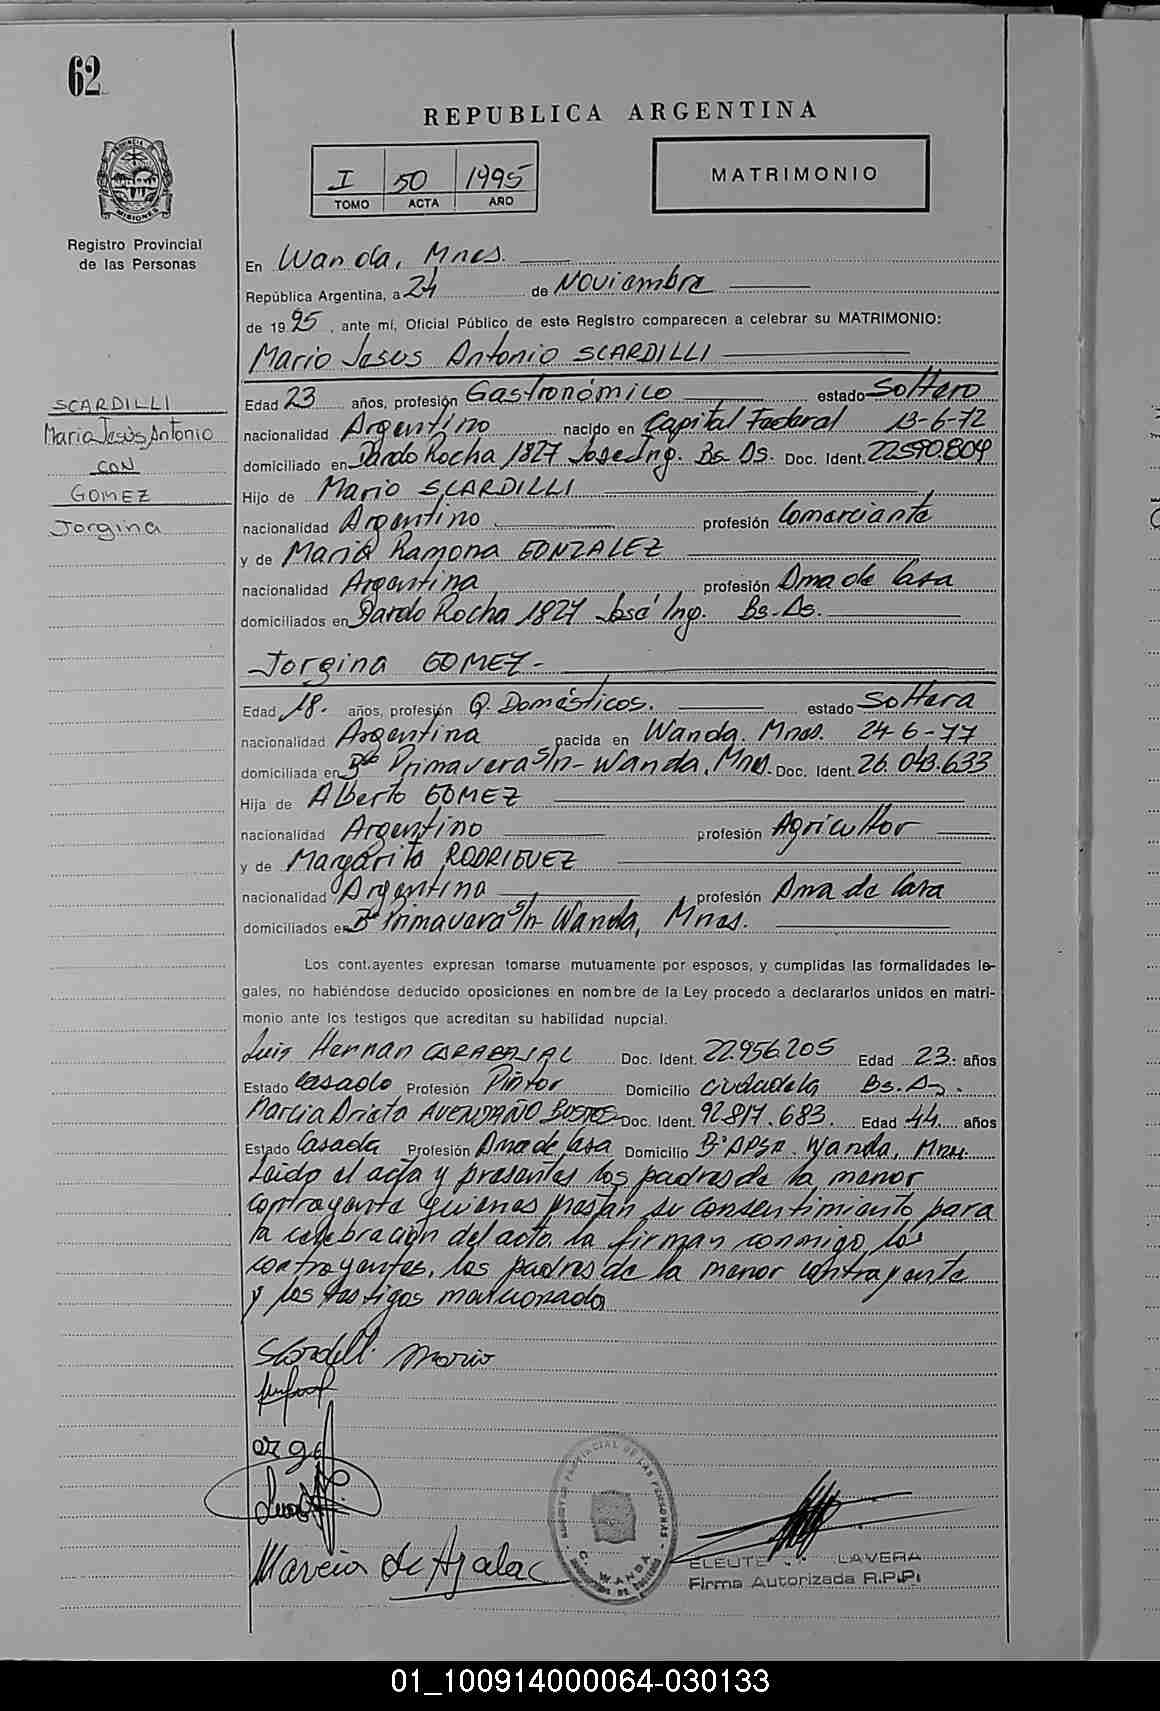 62
REPUBLICA ARGENTINA
I 50 1995
TOMO ACTA AÑO
MATRIMONIO
PROVINCIA DE MISIONES
Registro Provincial
de las Personas
En Wanda, Mnes.
República Argentina, a 24 de Noviembre
de 1995, ante mí, Oficial Público de este Registro comparecen a celebrar su MATRIMONIO:
Mario Jesus Antonio SCARDILLI
SCARDILLI
Mario Jesús Antonio
CON
GOMEZ
Jorgina
Edad 23 años, profesión Gastronómico estado Soltero
nacionalidad Argentino nacido en Capital Federal 13-6-72
domiciliado en Dardo Rocha 1827 Jose Ing. Bs. As. Doc. Ident. 22590.804
Hijo de Mario SCARDILLI
nacionalidad Argentino profesión Comerciante
y de Maria Ramona GONZALEZ
nacionalidad Argentina profesión Ama de Casa
domiciliados en Dardo Rocha 1827 José Ing. Bs-As.
Jorgina GOMEZ-
Edad 18. años, profesión Q. Domésticos. estado Soltera
nacionalidad Argentina nacida en Wanda. Mnes. 24-6-77
domiciliada en Bº Primavera S/n- Wanda, Mnes. Doc. Ident. 26.043.633
Hija de Alberto GOMEZ
nacionalidad Argentino profesión Agricultor
y de Margarita RODRIGUEZ
nacionalidad Argentina profesión Ama de Casa
domiciliados en Bº Primavera S/n- Wanda, Mnes.
Los cont.ayentes expresan tomarse mutuamente por esposos, y cumplidas las formalidades le-
gales, no habiéndose deducido oposiciones en nombre de la Ley procedo a declararlos unidos en matri-
monio ante los testigos que acreditan su habilidad nupcial.
Luis Hernan CARABAJAL Doc. Ident. 22.956.205 Edad 23. años
Estado Casado Profesión Pintor Domicilio Ciudadela Bs. As.
Marcia Drieta AVENDAÑO BUSTOS Doc. Ident. 92817.683. Edad 44 años
Estado Casada Profesión Ama de Casa Domicilio Bº APSA. Wanda, Mnes.
Leido el acta y presentes los padres de la menor
contrayente quienes prestan su consentimiento para
la celebración del acto, la firman conmigo, los
contrayentes, los padres de la menor contrayente
y los testigos mencionados
Scardilli Mario
Marcia de Ayala
REGISTRO PROVINCIAL DE LAS PERSONAS
WANDA
LAVERA
Firma Autorizada R.P.P.
01_100914000064-030133